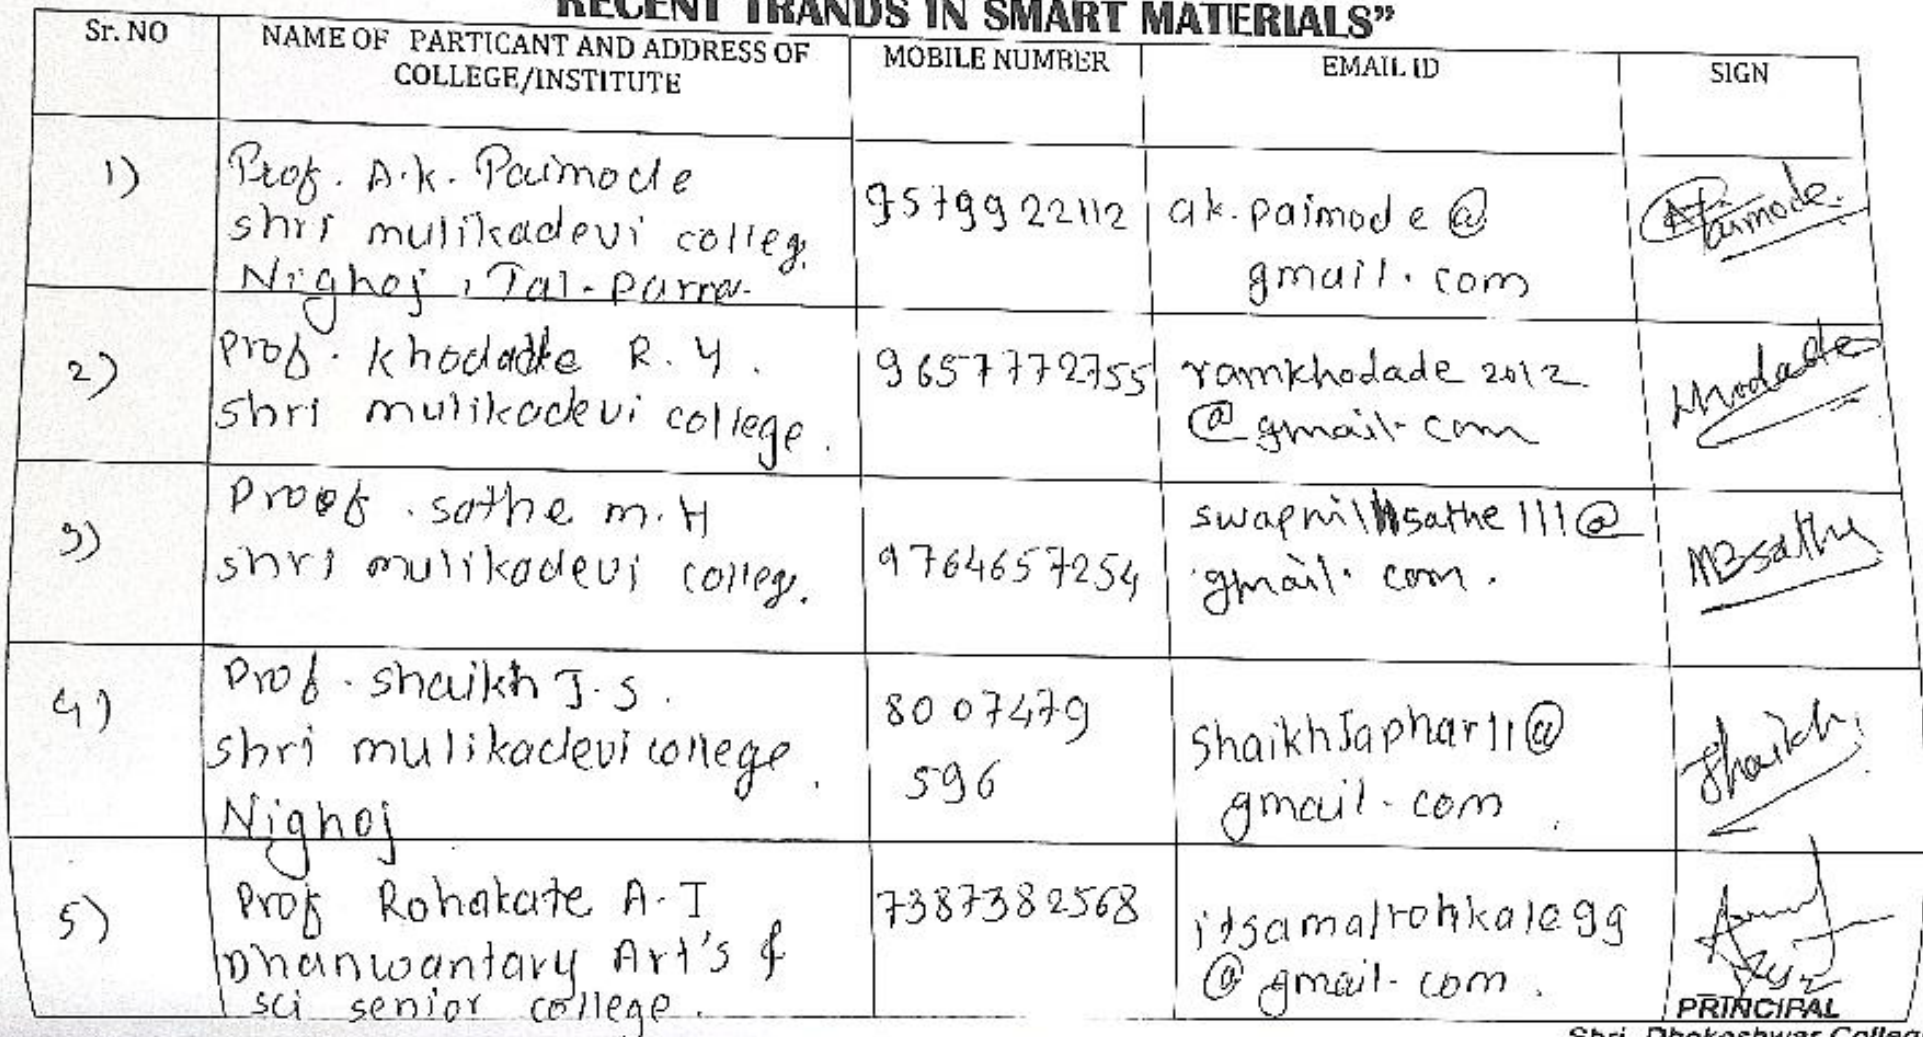 RECENT TRANDS IN SMART MATERIALS”
Sr. NO
NAME OF PARTICANT AND ADDRESS OF
COLLEGE/INSTITUTE
MOBILE NUMBER
EMAIL ID
SIGN
1)
Prof. A.k. Paimode
shri mulikadevi colleg.
Nighoj, Tal-parna.
9579922112
ak.paimode@
gmail.com
Paimode.
2)
prof. Khodade R.Y.
shri mulikadevi college.
9657772755
ramkhodade2012
@gmail.com
Khodade
3)
Proof. sathe m.H
shri mulikadevi colleg.
9764657254
swapnilsathe111@
gmail.com.
MBsathe
4)
Prof. shaikh J.S.
shri mulikadevi college.
Nighoj
8007479
596
shaikhJaphar11@
gmail.com.
Shaikh
5)
Prof Rohakate A.T
Dhanwantary Art's &
sci senior college.
7387382568
itsamalrohkale99
@gmail.com.
PRINCIPAL
Shri. Dhokeshwar College